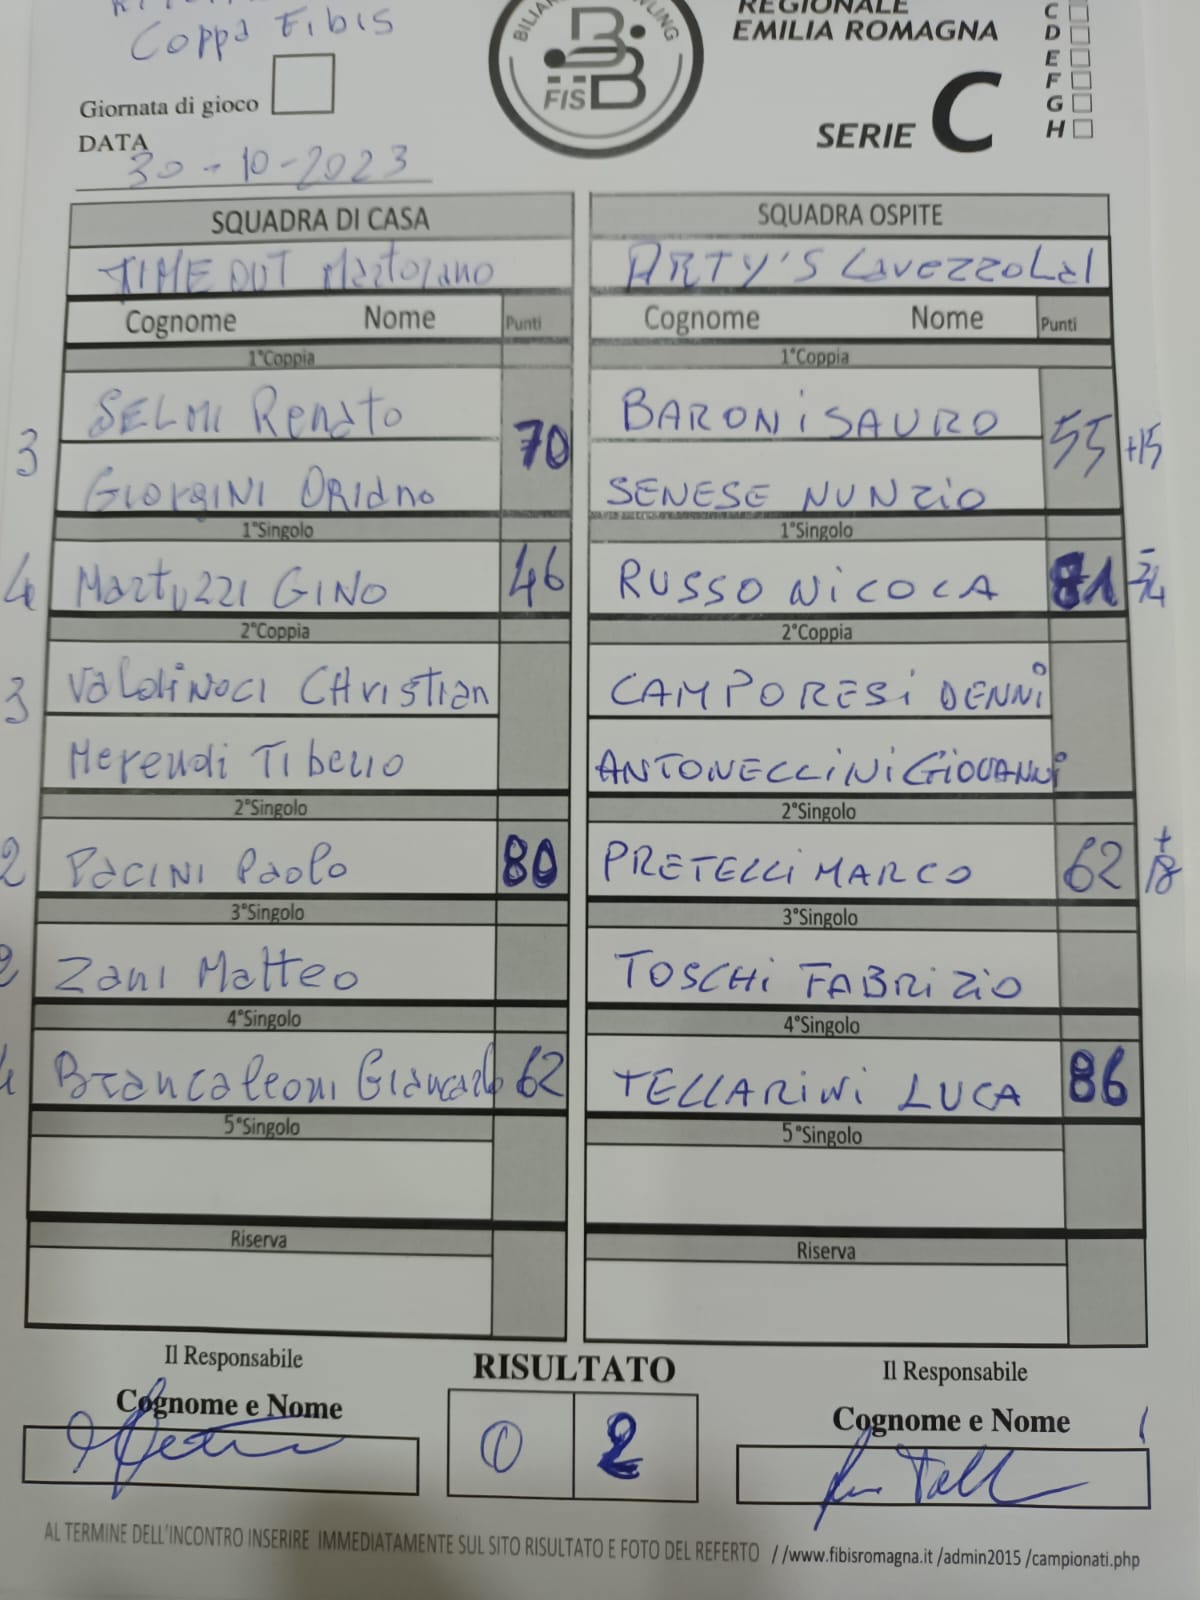 Coppa Fibis
Giornata di gioco
DATA
30-10-2023
BILIAR
WLING
FISBB
REGIONALE
EMILIA ROMAGNA
SERIE C
C
D
E
F
G
H
SQUADRA DI CASA SQUADRA OSPITE
TIME OUT Martorano ARTY'S Lavezzola 1
Cognome Nome Punti Cognome Nome Punti
1°Coppia 1°Coppia
SELMI Renato BARONI SAURO
3 70 55 +15
GIORGINI ORIANO SENESE NUNZIO
1°Singolo 1°Singolo
4 Martuzzi GINO 46 RUSSO NICOLA 81
2°Coppia 2°Coppia
3 Valdinoci CHristian CAMPORESI DENNI
Merendi Tiberio ANTONELLINI GIOVANNI
2°Singolo 2°Singolo
2 PACINI Paolo 80 PRETELLI MARCO 62 +18
3°Singolo 3°Singolo
2 Zani Matteo TOSCHI FABRIZIO
4°Singolo 4°Singolo
Brancaleoni Giancarlo 62 TELLARINI LUCA 86
5°Singolo 5°Singolo
Riserva Riserva
Il Responsabile RISULTATO Il Responsabile
Cognome e Nome Cognome e Nome
0 2
AL TERMINE DELL'INCONTRO INSERIRE IMMEDIATAMENTE SUL SITO RISULTATO E FOTO DEL REFERTO //www.fibisromagna.it /admin2015 /campionati.php